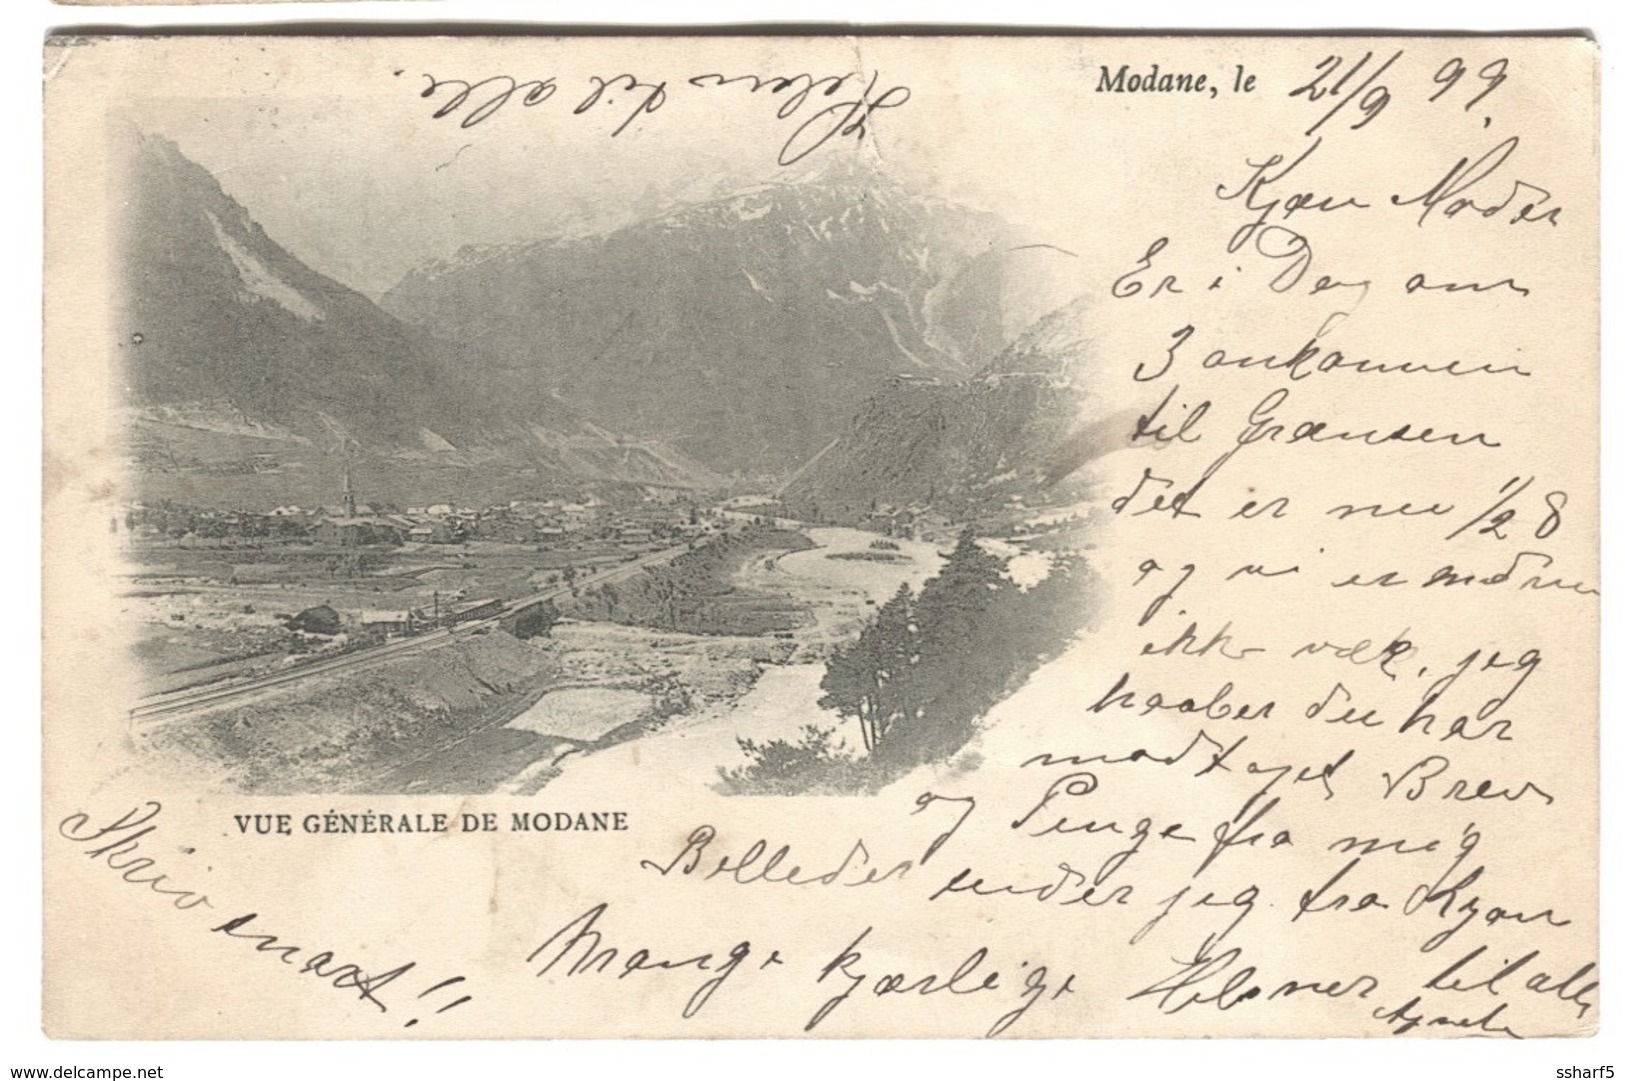 Modane, le 21/9 99.
Kjære Moder
Er i Dag om
3 ankommen
til Grænsen
det er nu 1/2 8
og vi er endnu
ikke væk, jeg
haaber du har
modtaget Brev
og Penge fra mig
Billeder sender jeg fra Lyon
Mange kjærlige Hilsner til alle
Skriv
snart!!
Helsn til alle.
VUE GÉNÉRALE DE MODANE
www.delcampe.net
ssharf5